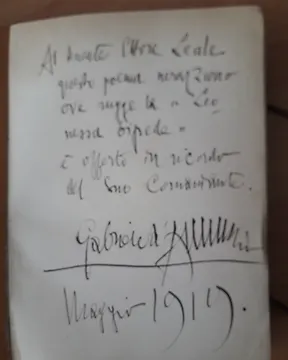 Al Fante Ettore Leale
questo poema veneziano
ove rugge la "Leo
nessa
è offerto in ricordo
del Suo Comandante.
Gabriele d'Annunzio
Maggio 1919.